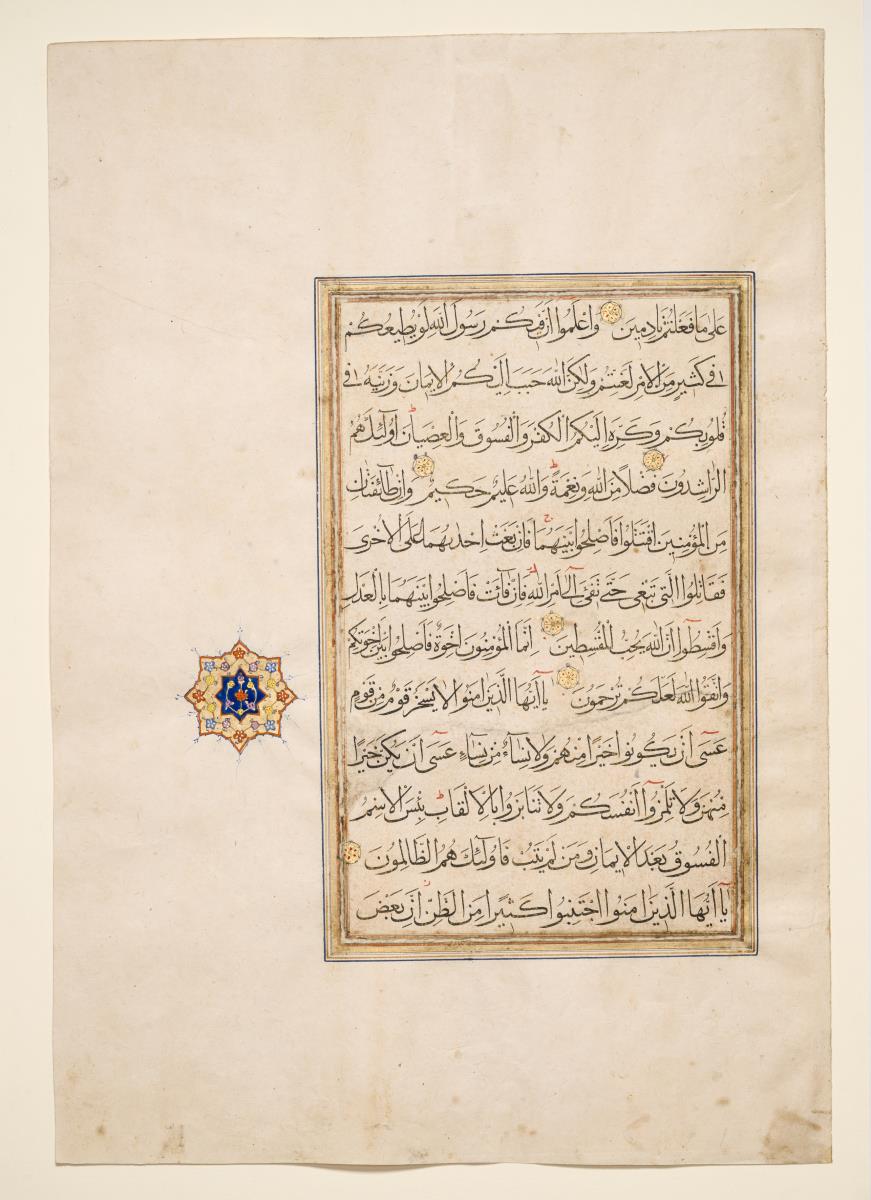 عَلَىٰ مَا فَعَلْتُمْ نَادِمِينَ وَاعْلَمُوا أَنَّ فِيكُمْ رَسُولَ اللَّهِ لَوْ يُطِيعُكُمْ
فِي كَثِيرٍ مِنَ الْأَمْرِ لَعَنِتُّمْ وَلَٰكِنَّ اللَّهَ حَبَّبَ إِلَيْكُمُ الْإِيمَانَ وَزَيَّنَهُ فِي
قُلُوبِكُمْ وَكَرَّهَ إِلَيْكُمُ الْكُفْرَ وَالْفُسُوقَ وَالْعِصْيَانَ أُولَٰئِكَ هُمُ
الرَّاشِدُونَ فَضْلًا مِنَ اللَّهِ وَنِعْمَةً وَاللَّهُ عَلِيمٌ حَكِيمٌ وَإِنْ طَائِفَتَانِ
مِنَ الْمُؤْمِنِينَ اقْتَتَلُوا فَأَصْلِحُوا بَيْنَهُمَا فَإِنْ بَغَتْ إِحْدَىٰهُمَا عَلَى الْأُخْرَىٰ
فَقَاتِلُوا الَّتِي تَبْغِي حَتَّىٰ تَفِيءَ إِلَىٰ أَمْرِ اللَّهِ فَإِنْ فَاءَتْ فَأَصْلِحُوا بَيْنَهُمَا بِالْعَدْلِ
وَأَقْسِطُوا إِنَّ اللَّهَ يُحِبُّ الْمُقْسِطِينَ إِنَّمَا الْمُؤْمِنُونَ إِخْوَةٌ فَأَصْلِحُوا بَيْنَ أَخَوَيْكُمْ
وَاتَّقُوا اللَّهَ لَعَلَّكُمْ تُرْحَمُونَ يَا أَيُّهَا الَّذِينَ آمَنُوا لَا يَسْخَرْ قَوْمٌ مِنْ قَوْمٍ
عَسَىٰ أَنْ يَكُونُوا خَيْرًا مِنْهُمْ وَلَا نِسَاءٌ مِنْ نِسَاءٍ عَسَىٰ أَنْ يَكُنَّ خَيْرًا
مِنْهُنَّ وَلَا تَلْمِزُوا أَنْفُسَكُمْ وَلَا تَنَابَزُوا بِالْأَلْقَابِ بِئْسَ الِاسْمُ
الْفُسُوقُ بَعْدَ الْإِيمَانِ وَمَنْ لَمْ يَتُبْ فَأُولَٰئِكَ هُمُ الظَّالِمُونَ
يَا أَيُّهَا الَّذِينَ آمَنُوا اجْتَنِبُوا كَثِيرًا مِنَ الظَّنِّ إِنَّ بَعْضَ